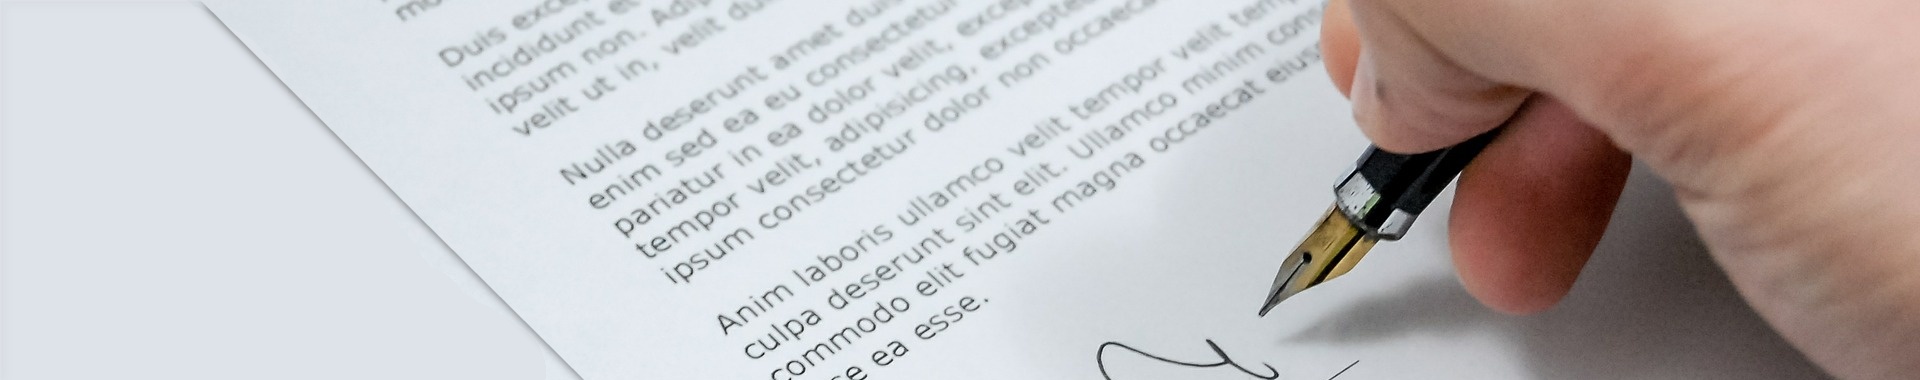 Duis excep
incididunt et
ipsum non. Adip
velit ut in, velit du
Nulla deserunt amet duis
enim sed ea eu consectetur
pariatur in ea dolor velit, excep
tempor velit, adipisicing, excepte
ipsum consectetur dolor non occaeca
Anim laboris ullamco velit tempor velit temp
culpa deserunt sint elit. Ullamco minim cons
commodo elit fugiat magna occaecat eius
se ea esse.